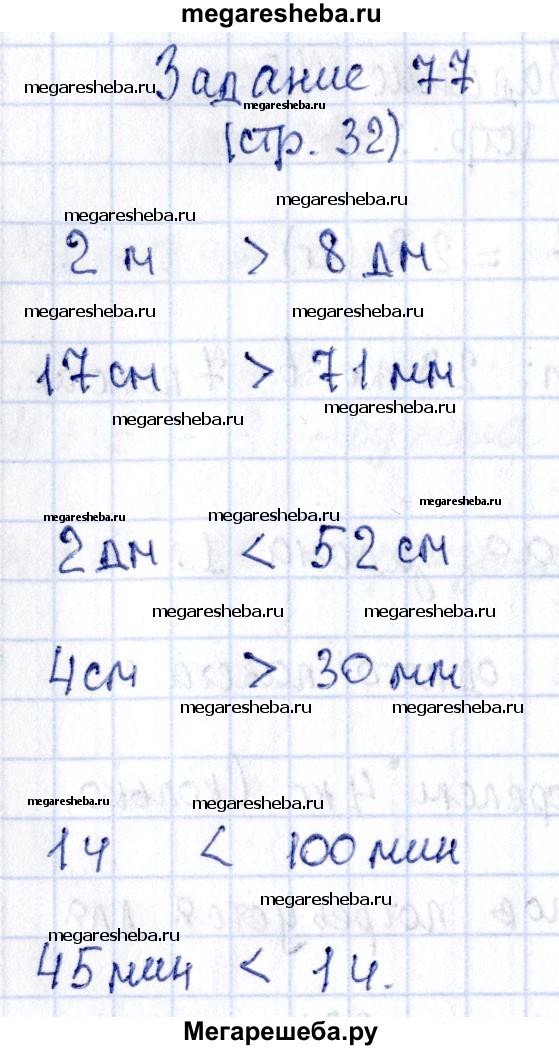 megaresheba.ru
Задание 77
megaresheba.ru
megaresheba.ru
(стр. 32)
megaresheba.ru
megaresheba.ru
2 м > 8 дм
megaresheba.ru megaresheba.ru
17 см > 71 мм
megaresheba.ru megaresheba.ru
megaresheba.ru megaresheba.ru megaresheba.ru
2 дм < 52 см
megaresheba.ru megaresheba.ru
4 см > 30 мм
megaresheba.ru megaresheba.ru
megaresheba.ru megaresheba.ru
1 ч < 100 мин
megaresheba.ru
megaresheba.ru
45 мин < 1 ч.
Мегарешеба.ру